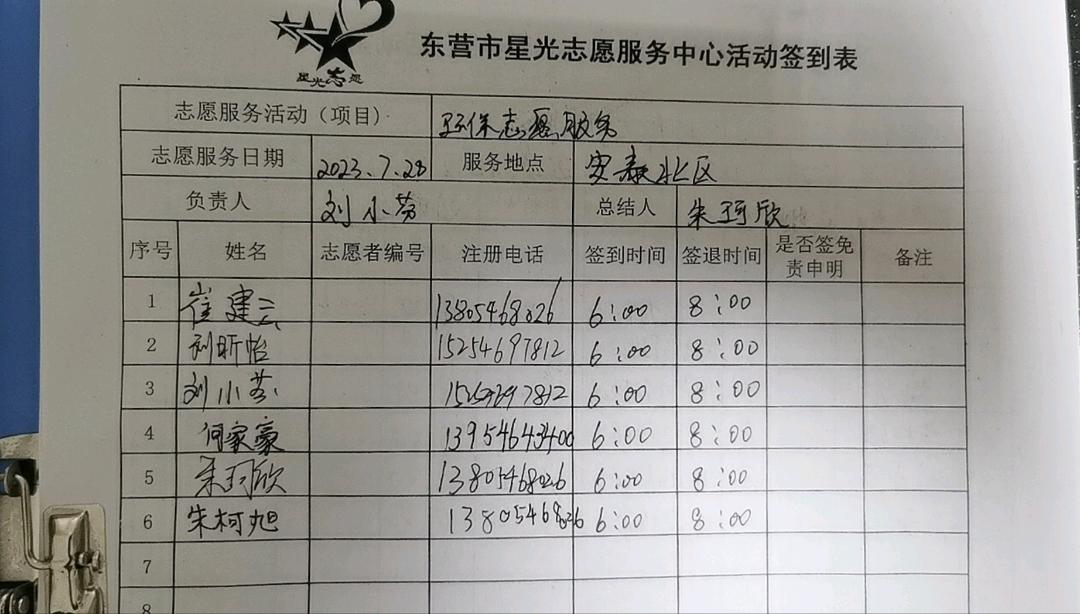 星光志愿
东营市星光志愿服务中心活动签到表
志愿服务活动（项目） 环保志愿服务
志愿服务日期 2023.7.28 服务地点 安泰北区
负责人 刘小芬 总结人 朱珂欣
序号 姓名 志愿者编号 注册电话 签到时间 签退时间 是否签免责申明 备注
1 崔建云 13805468026 6:00 8:00
2 刘昕怡 15254697812 6:00 8:00
3 刘小芬 15254697812 6:00 8:00
4 何家豪 13954643400 6:00 8:00
5 朱珂欣 13805468026 6:00 8:00
6 朱柯旭 13805468026 6:00 8:00
7
8